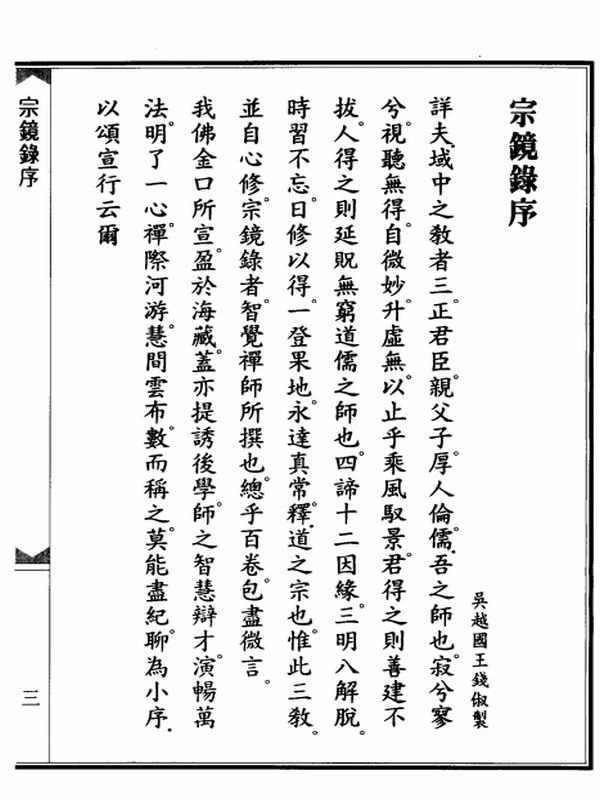 宗鏡錄序
吳越國王錢俶製
詳夫域中之敎者三。正君臣。親父子。厚人倫。儒。吾之師也。寂兮寥
兮。視聽無得。自微妙。升虛無。以止乎乘風馭景。君得之則善建不
拔。人得之則延貺無窮。道儒之師也。四諦十二因緣。三明八解脫。
時習不忘。日修以得。一登果地。永達真常。釋。道之宗也。惟此三敎。
並自心修。宗鏡錄者。智覺禪師所撰也。總乎百卷。包盡微言。
我佛金口所宣。盈於海藏。蓋亦提誘後學。師之智慧辯才。演暢萬
法。明了一心。禪際河游。慧間雲布。數而稱之。莫能盡紀。聊為小序。
以頌宣行云爾
宗鏡錄序
三